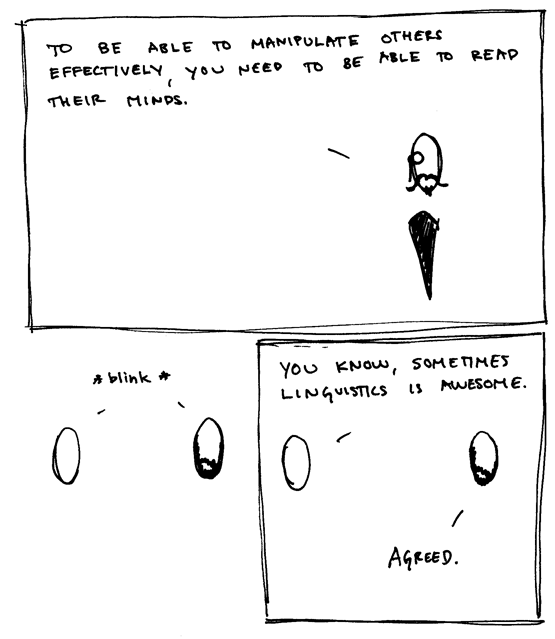 TO BE ABLE TO MANIPULATE OTHERS
EFFECTIVELY, YOU NEED TO BE ABLE TO READ
THEIR MINDS.
*blink*
YOU KNOW, SOMETIMES
LINGUISTICS IS AWESOME.
AGREED.